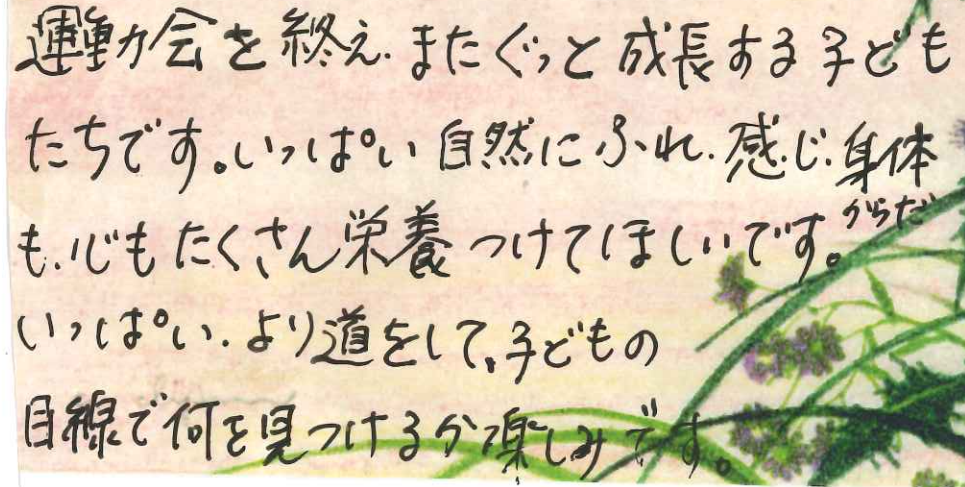 運動会を終え、またぐっと成長する子ども
たちです。いっぱい自然にふれ、感じ、身体
も、心もたくさん栄養つけてほしいです。
からだ
いっぱい、より道をして、子どもの
目線で何を見つけるか楽しみです。